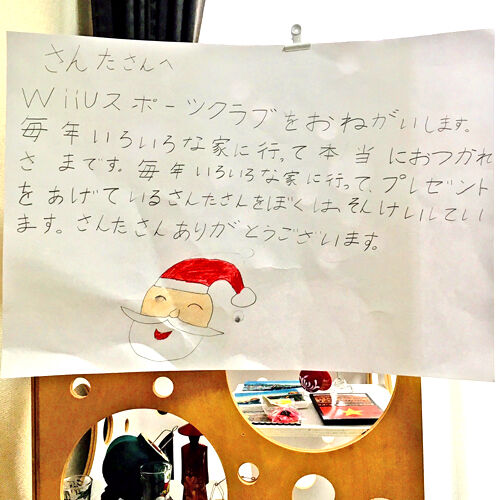 さんたさんへ
WiiUスポーツクラブをおねがいします。
毎年いろいろな家に行って本当におつかれ
さまです。毎年いろいろな家に行って、プレゼント
をあげているさんたさんをぼくは、そんけいしてい
ます。さんたさんありがとうございます。